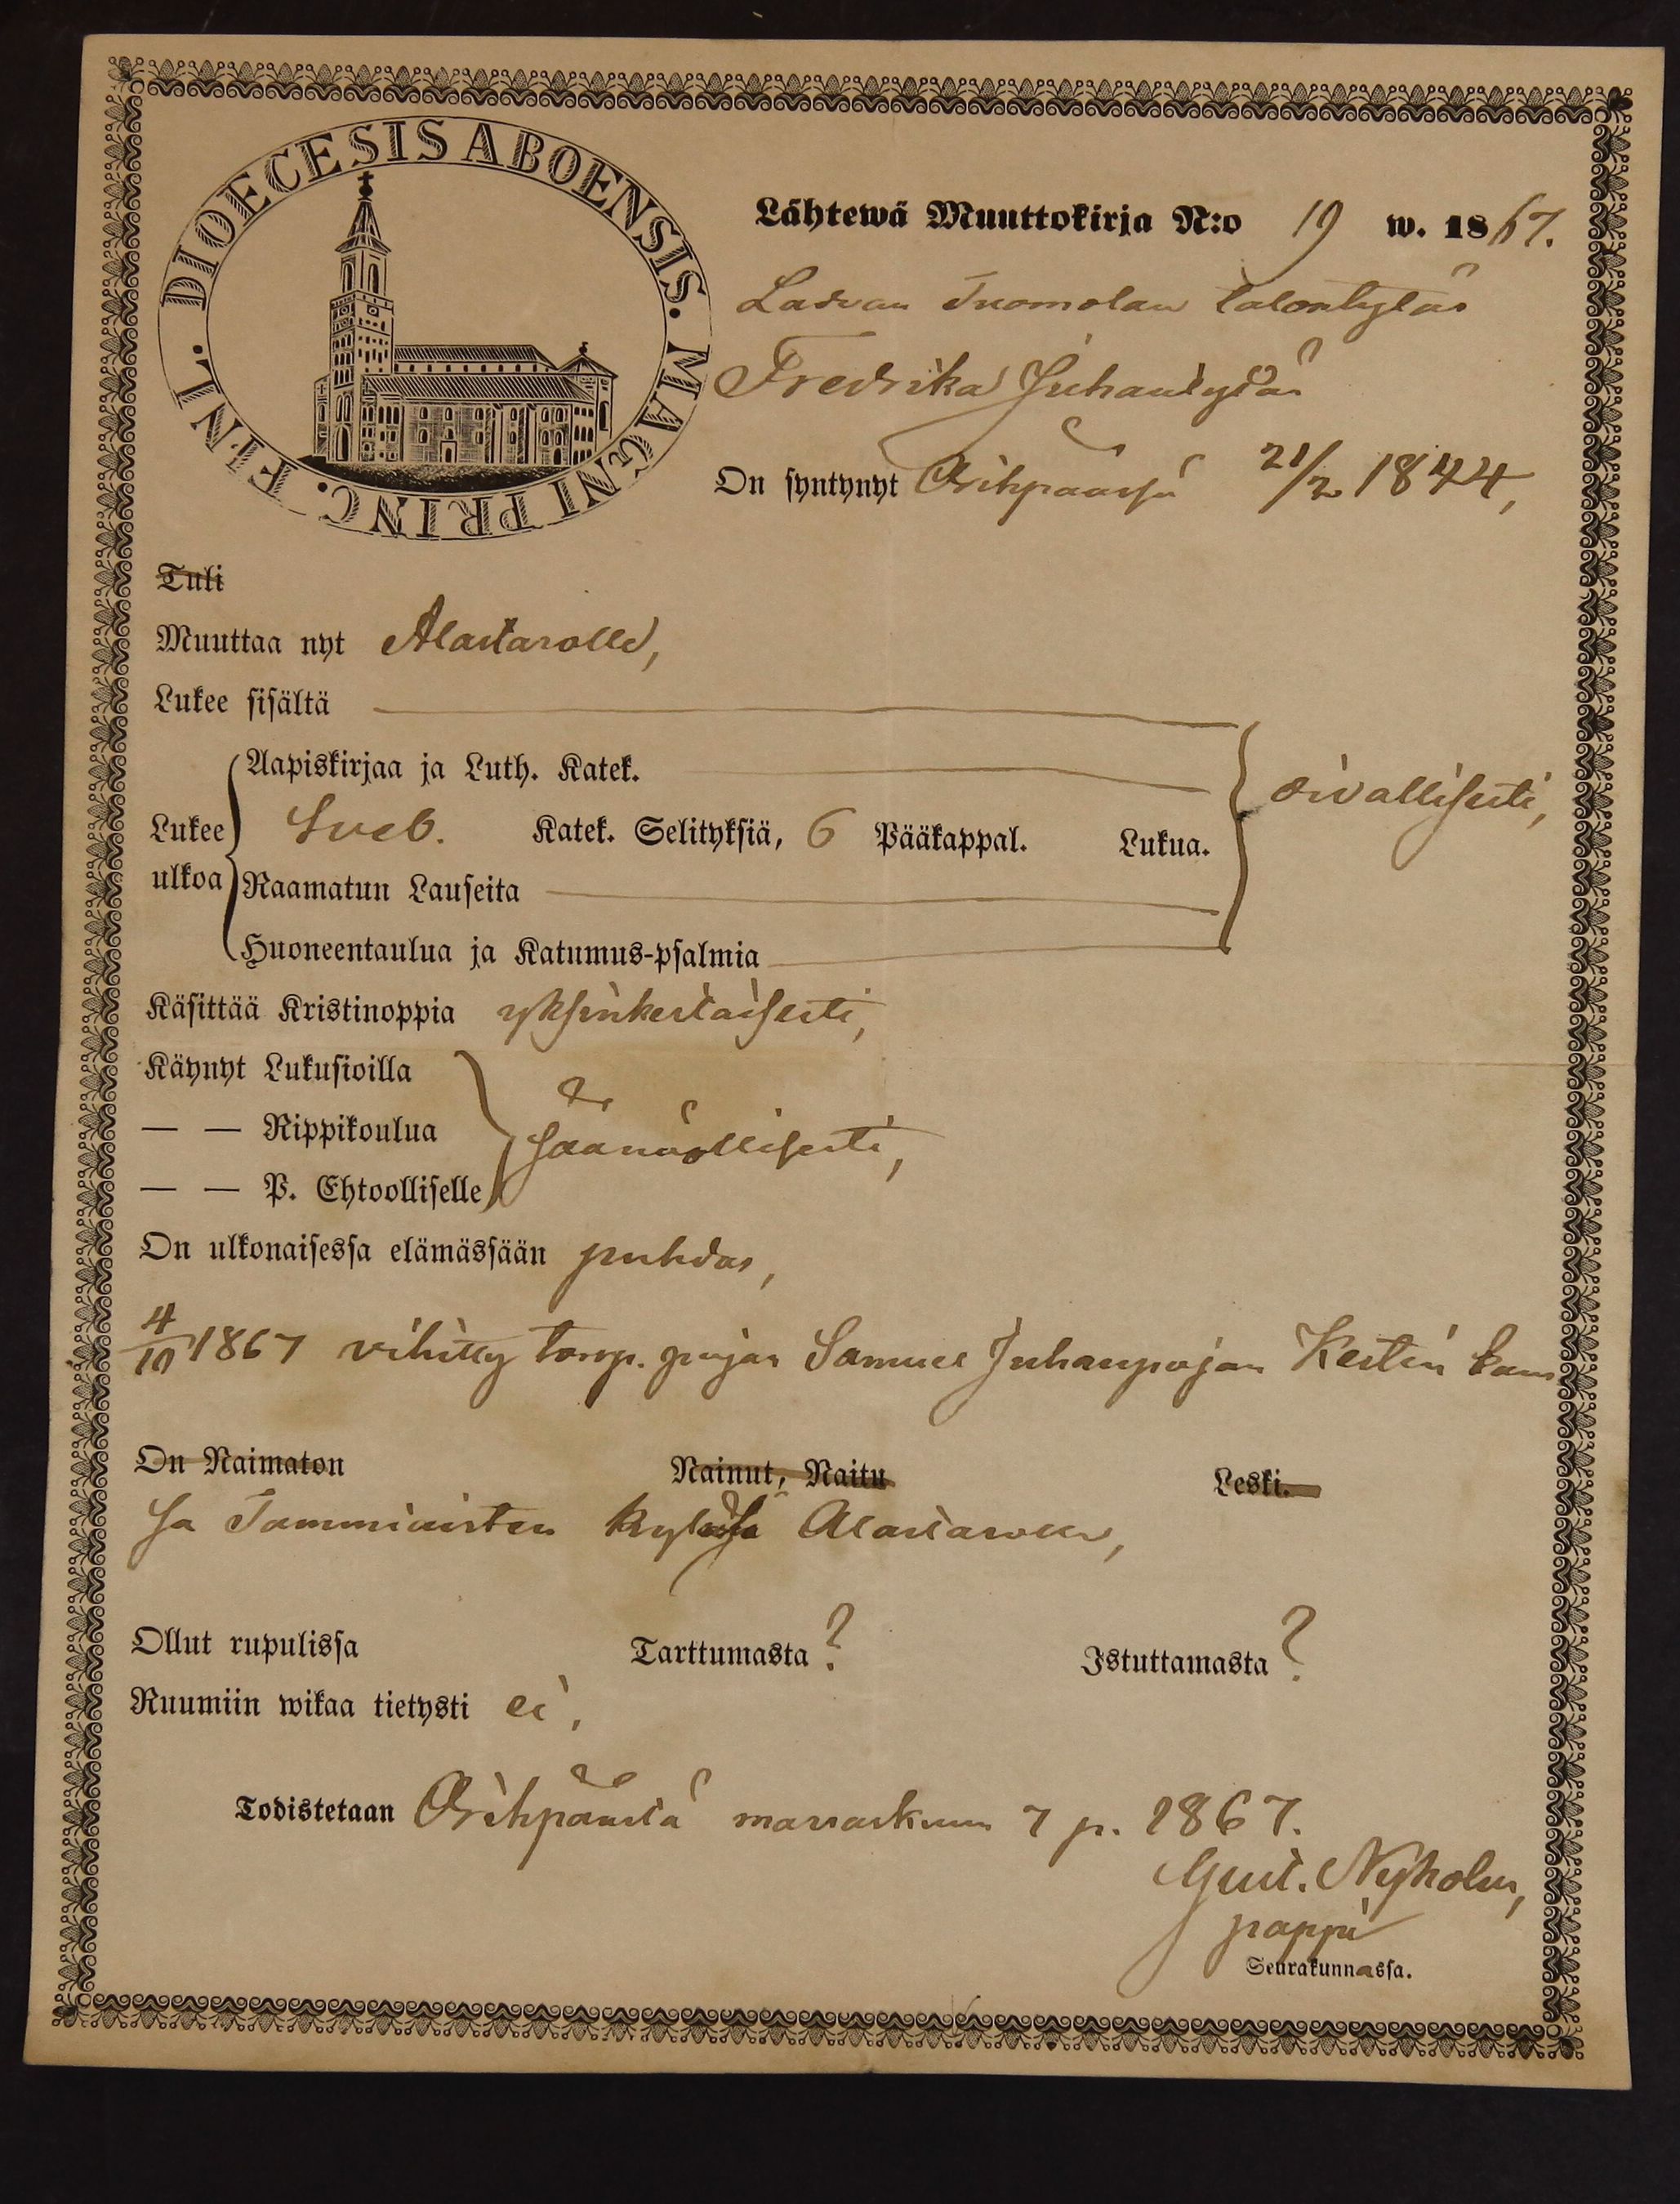 DIOECESIS ABOENSIS. MAGNI PRINC. FINL.
Lähtewä Muuttokirja N:o 19 w. 1867.
Ladvan Tuomolan talontytär
Fredrika Juhantytär
On syntynyt Orihpäässä 21/2 1844,
Tuli
Muuttaa nyt Alastarolle,
Lukee sisältä
Aapiskirjaa ja Luth. Katek.
Lukee ulkoa Sveb. Katek. Selityksiä, 6 Pääkappal. Lukua. oivallisesti,
Raamatun Lauseita
Huoneentaulua ja Katumus-psalmia
Käsittää Kristinoppia yksinkertaisesti,
Käynyt Lukusioilla
— — Rippikoulua säänöllisesti,
— — P. Ehtoolliselle
On ulkonaisessa elämässään puhdas,
4/10 1867 vihitty torp. pojan Samuel Juhanpojan Kestin kans
On Naimaton Nainut, Naitu Leski.
sa Tammiaisten kylässä Alastarolla,
Ollut rupulissa Tarttumasta ? Istuttamasta ?
Ruumiin wikaa tietysti ei,
Todistetaan Orihpäästä marraskuun 7 p. 1867.
Gust. Nyholm,
pappi
Seurakunnassa.